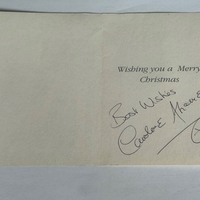 Wishing you a Merry
Christmas
Best Wishes
Caroline